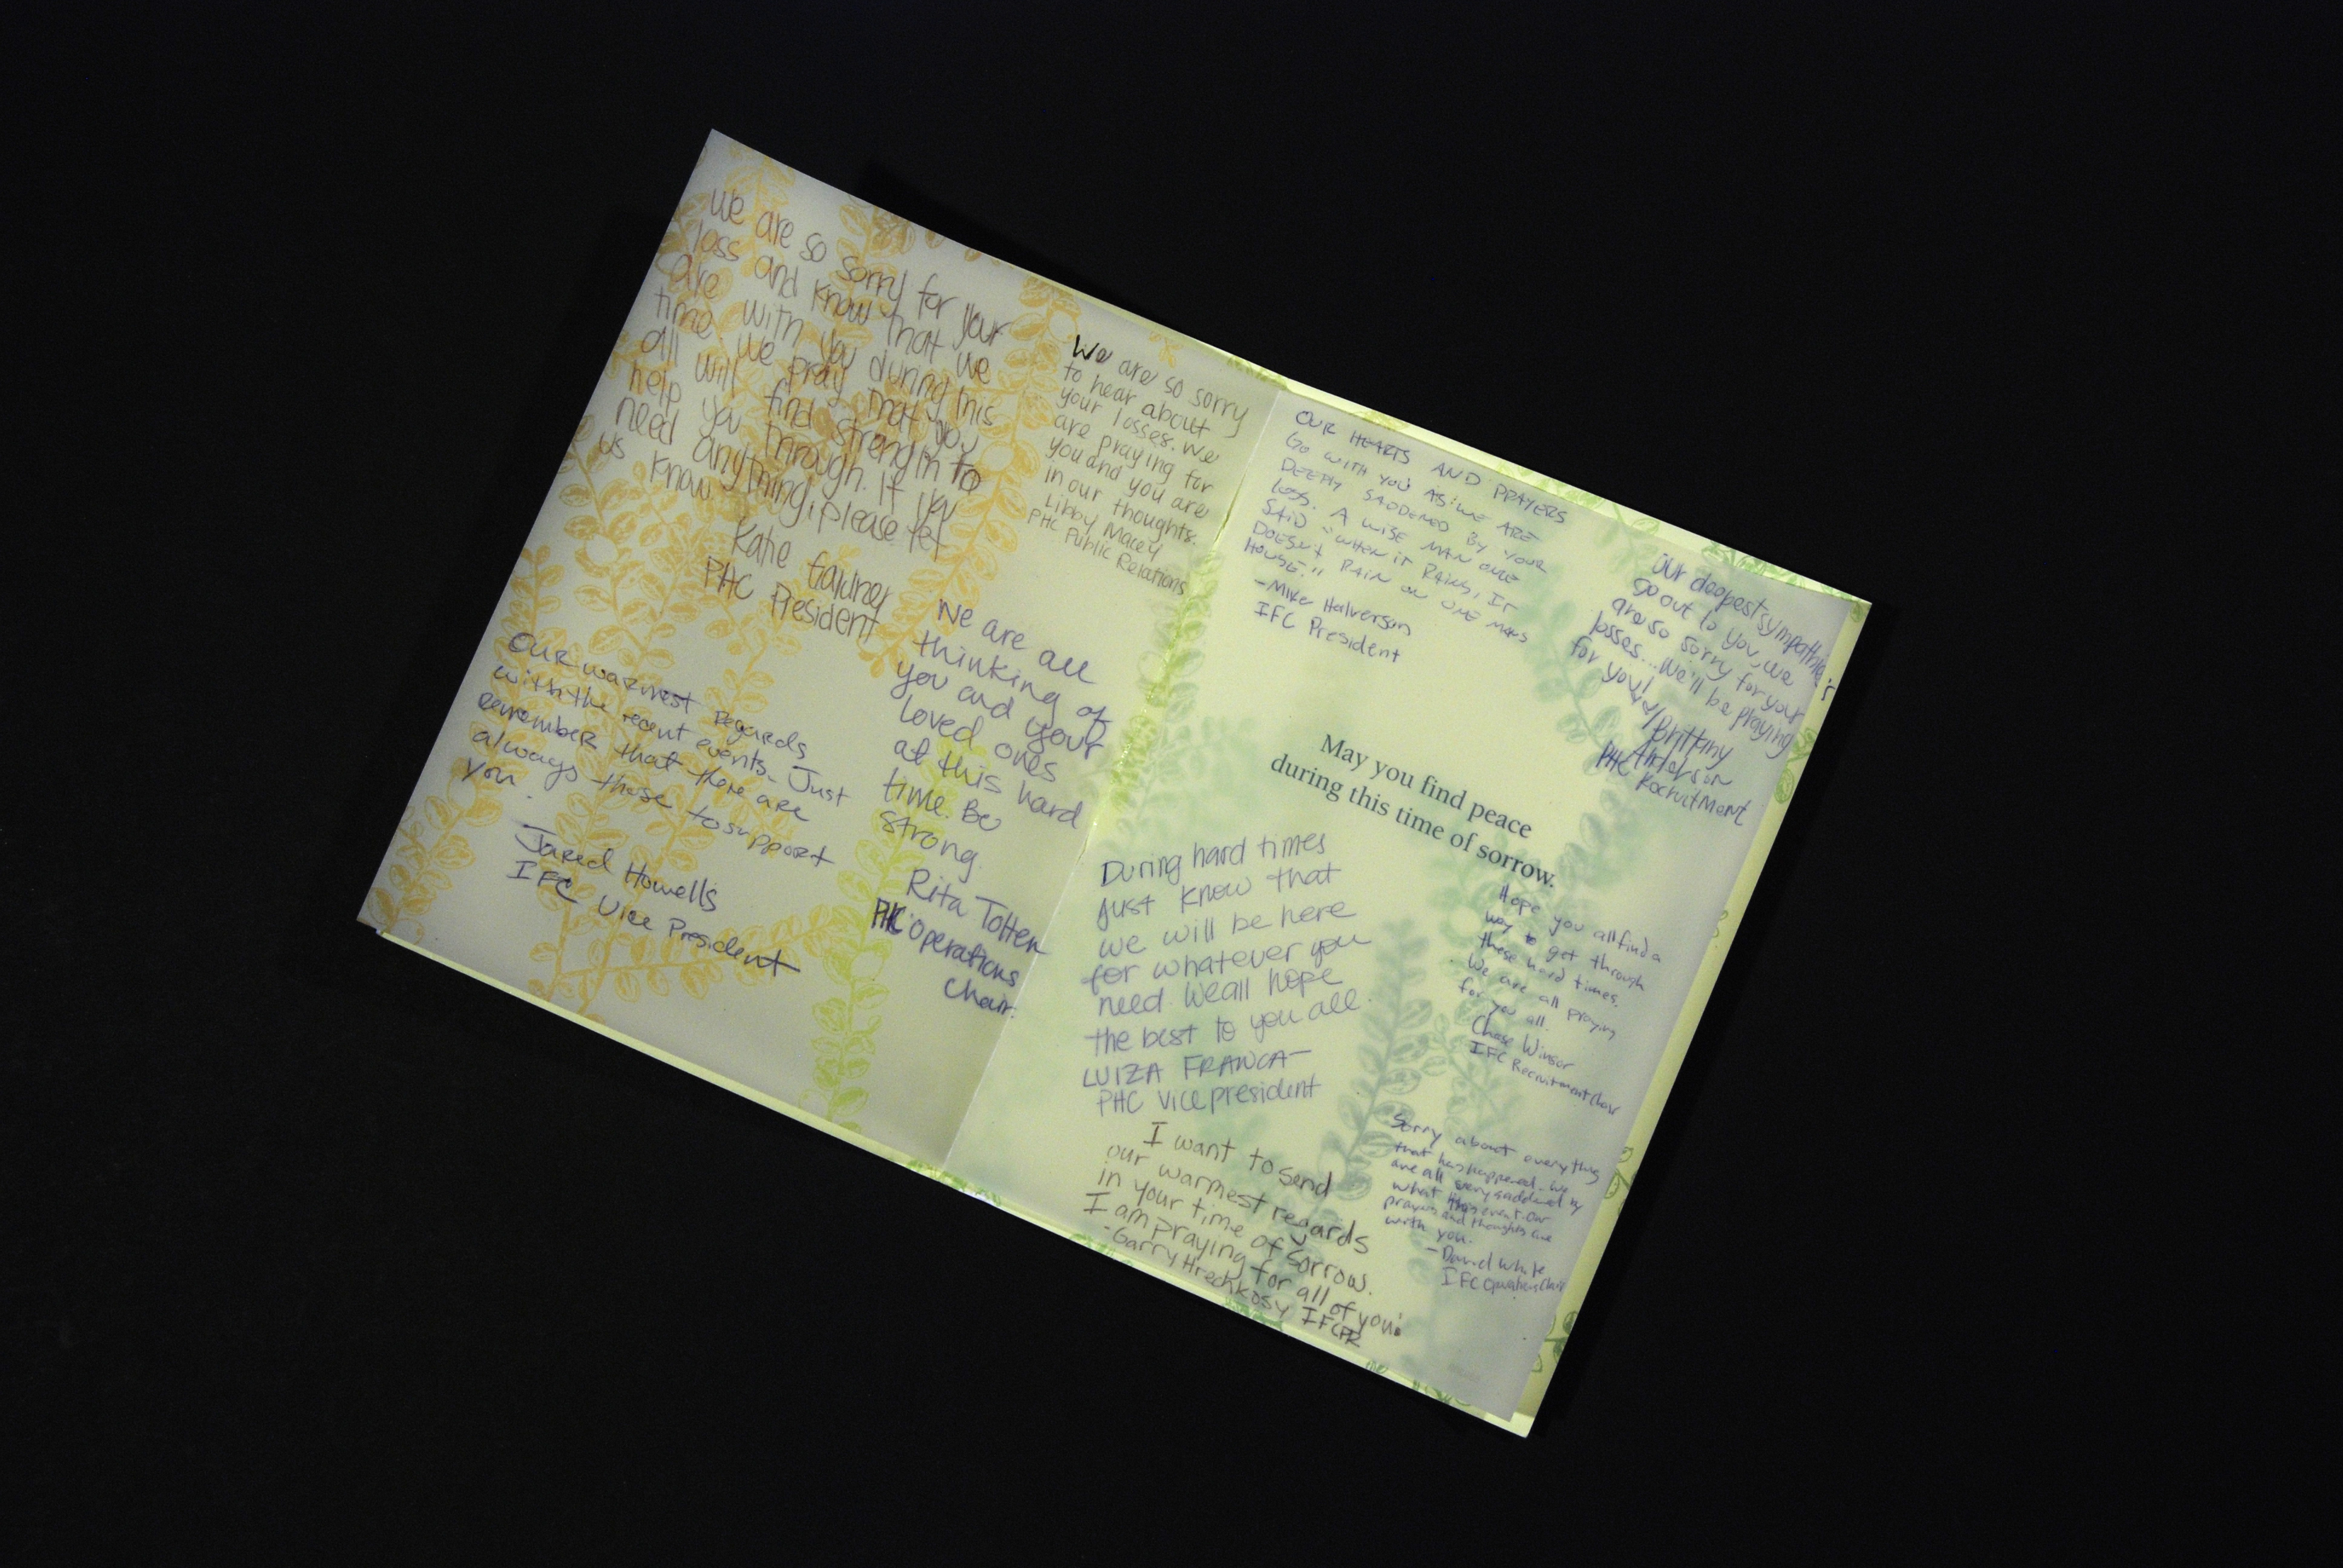 We are so sorry for your
loss and know that we
are with you during this
time. We pray that you
all will find strength to
help you through. If you
need anything, please let
us know
Katie
PHC President
We are so sorry
to hear about
your losses. We
are praying for
you and you are
in our thoughts.
Libby Macey
PHC Public Relations
Our warmest regards
with the recent events. Just
remember that there are
always those to support
you.
Jared Howells
IFC Vice President
We are all
thinking of
you and your
loved ones
at this hard
time. Be
strong.
Rita Totten
PHC Operations
Chair.
OUR HEARTS AND PRAYERS
GO WITH YOU AS WE ARE
DEEPLY SADDENED BY YOUR
LOSS. A WISE MAN ONCE
SAID "WHEN IT RAINS, IT
DOESN'T RAIN ON ONE MANS
HOUSE."
-Mike Halverson
IFC President
Our deepest sympathies
go out to you, we
are so sorry for your
losses... We'll be praying
for you!
Brittany
Anderson
PHC Recruitment
May you find peace
during this time of sorrow.
During hard times
just know that
we will be here
for whatever you
need. We all hope
the best to you all.
LUIZA FRANCA-
PHC Vice president
Hope you all find a
way to get through
these hard times.
We are all praying
for you all.
Chase Winsor
IFC Recruitment Chair
I want to send
our warmest regards
in your time of sorrow.
I am praying for all of you.
-Garry Hrechkosy IFCPR
Sorry about everything
that has happened. We
are all very saddened by
what this event. Our
prayers and thoughts are
with you.
-David White
IFC Operations Chair